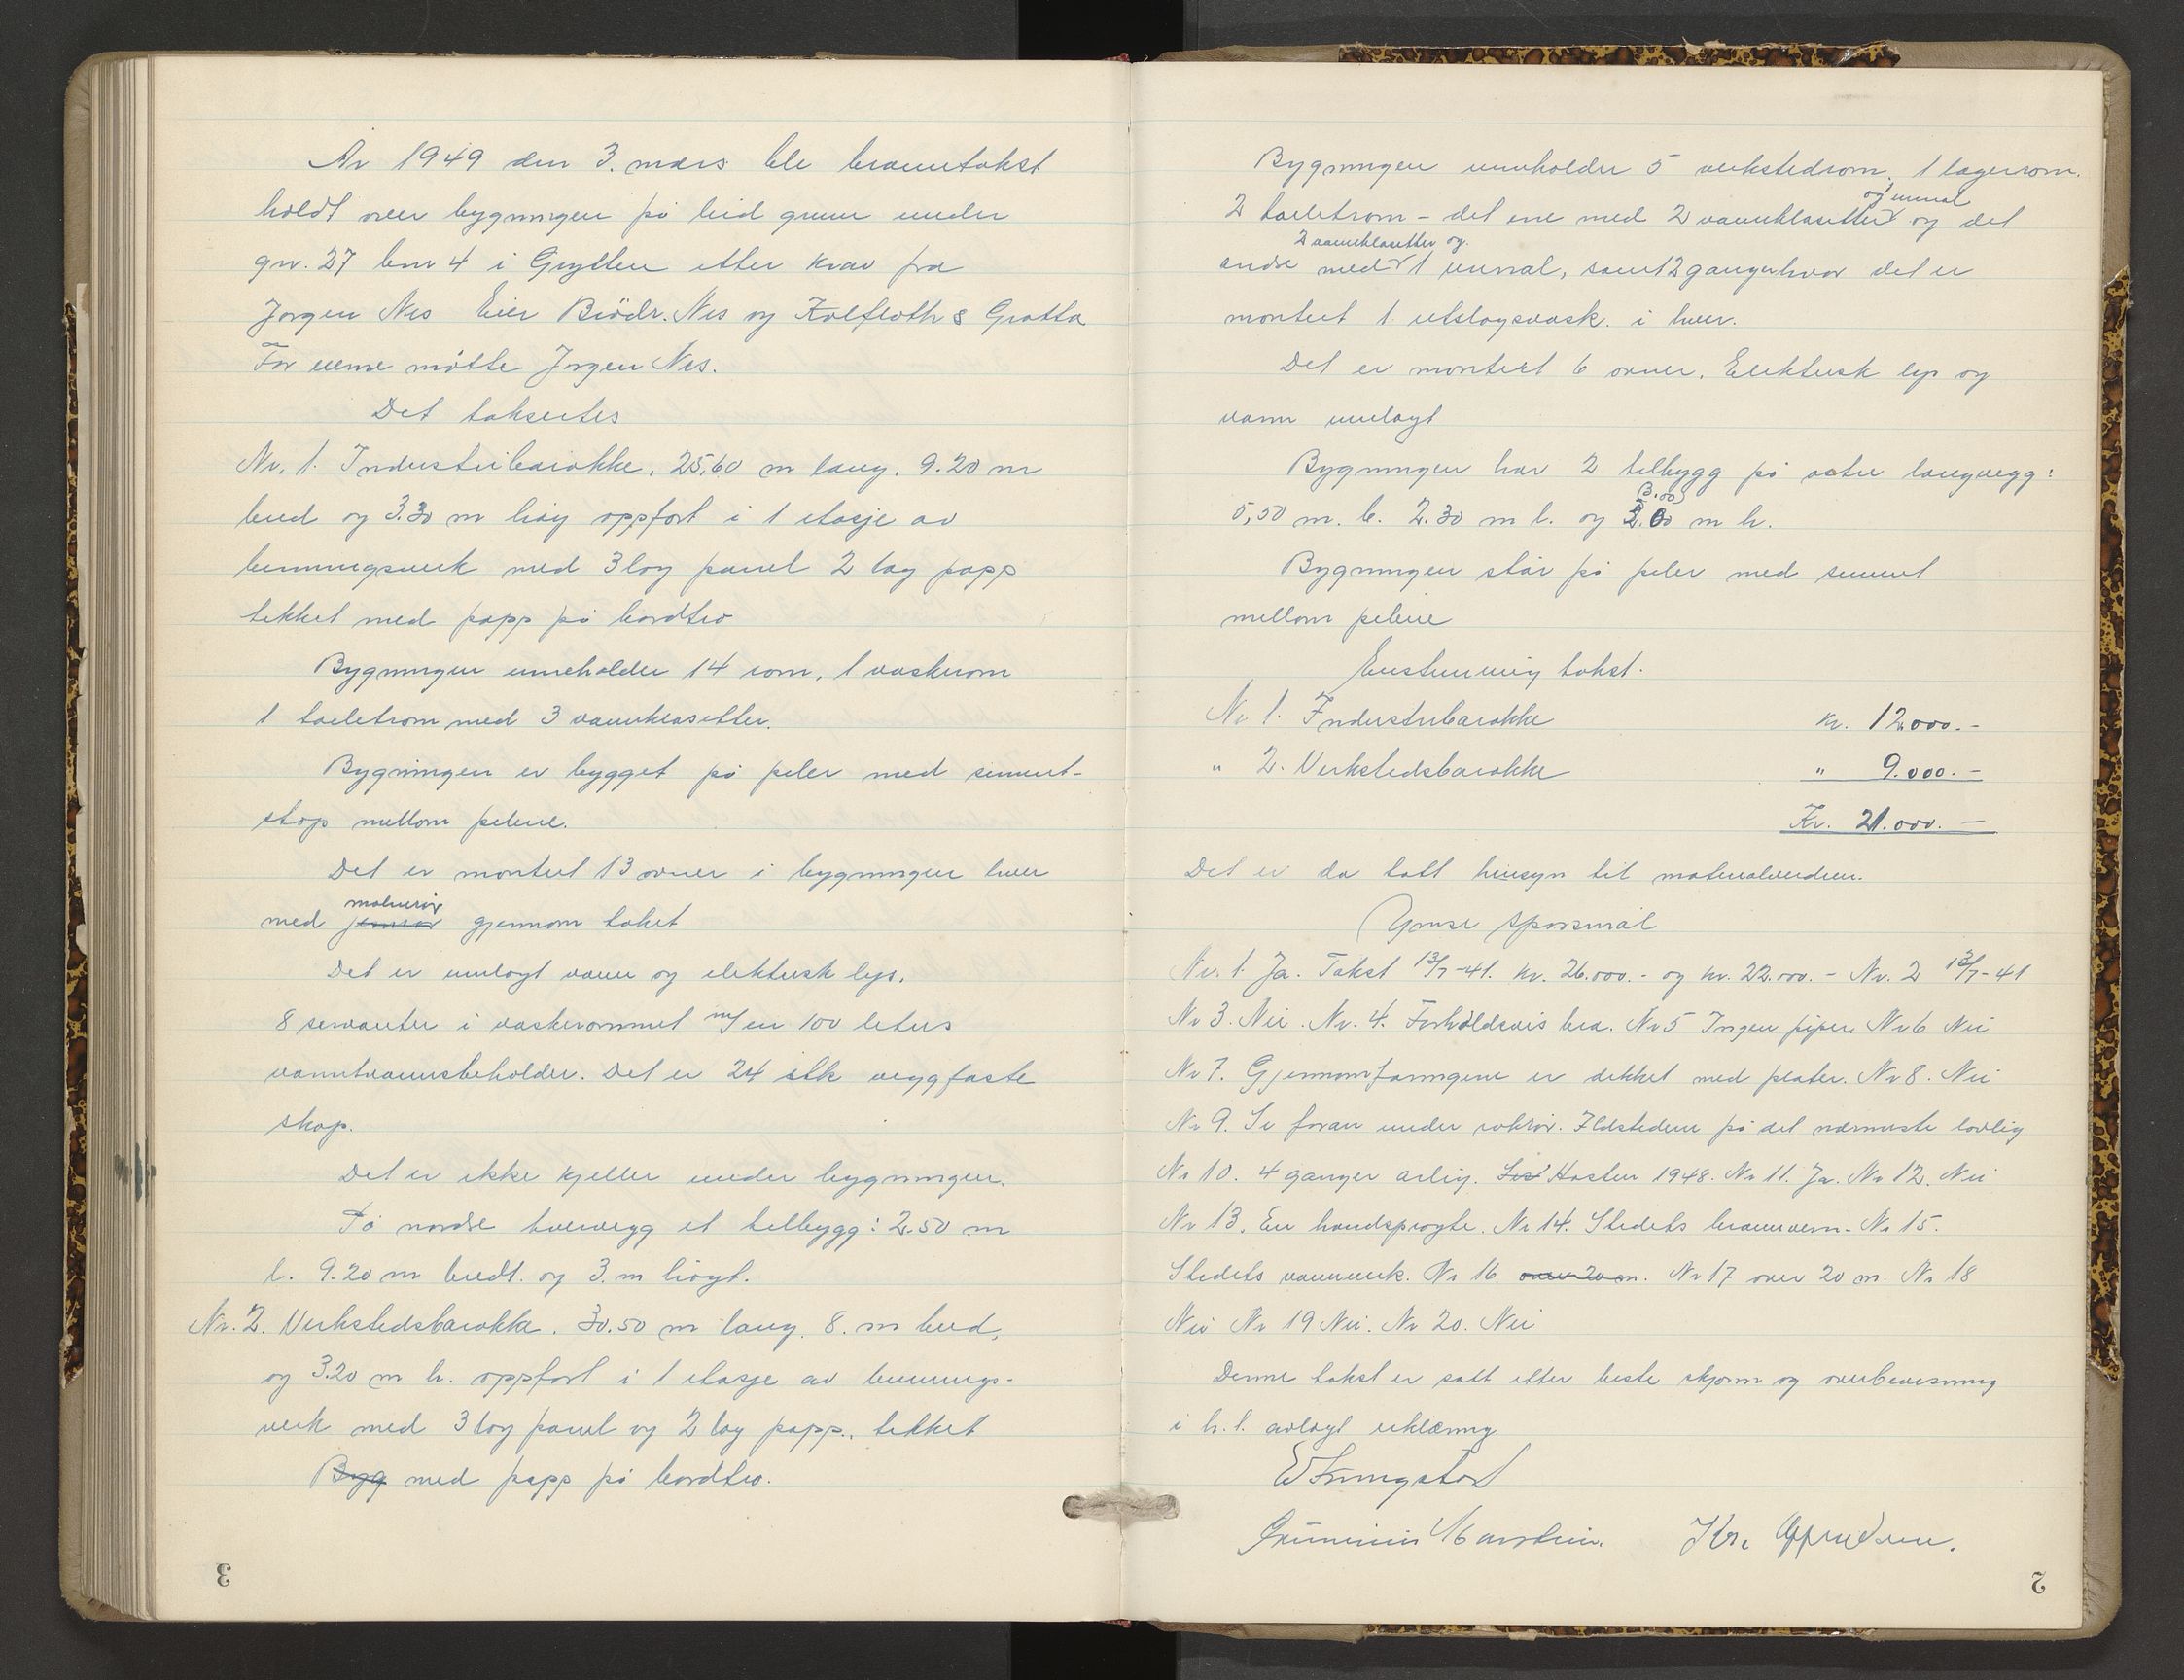 År 1949 den 3. mars ble branntakst
holdt over bygningen på leid grunn under
gnr. 27 bnr 4 i Grytten etter krav fra
Jørgen Nes Eier Brödr. Nes og & Grøtta
For eierne møtte Jørgen Nes.
Det taksertes
Nr. 1. Industribarakke, 25,60 m lang, 9.20 m
bred og 3.30 m høy oppført i 1 etasje av
binningsverk med 3 lag panel 2 lag papp
tekket med papp på bordtro
Bygningen inneholder 14 rom, 1 vaskerom
1 toaletrom med 3 vannklosetter.
Bygningen er bygget på peler med sement-
støp mellom pelene.
Det er montert 13 ovner i bygningen hver
med malmrör jernrør gjennom taket
Det er innlagt vann og elektrisk lys.
8 servanter i vaskerommet m/ en 100 liters
varmtvannsbeholder. Det er 24 stk veggfaste
skap.
Det er ikke kjeller under bygningen.
På nordre tverrvegg et tilbygg: 2.50 m
l. 9.20 m bredt. og 3. m høgt.
Nr. 2. Verkstedsbarakke. 30.50 m lang, 8. m bred,
og 3.20 m h. oppført i 1 etasje av binnings-
verk med 3 lag panel og 2 lag papp., tekket
Byg med papp på bordtro.
3
Bygningen inneholder 5 verkstedrom, 1 lagerrom.
2 toaletrom - det ene med 2 vannklosetter og urinal og det
andre med 2 vannklosetter og 1 urinal, samt 2 ganger hvor det er
montert 1 utslagsvask. i hver.
Det er montert 6 ovner. Elektrisk lys og
vann innlagt
Bygningen har 2 tilbygg på østre langvegg:
5,50 m. b. 2.30 m l. og (3.00) m h.
Bygningen står på peler med sement
mellom pelene
Enstemmig takst.
Nr 1. Industribarakke kr. 12.000.-
" 2. Verkstedsbarakke " 9.000.-
Kr. 21.000.-
Det er da tatt hensyn til materialverdien.
Ymse spørsmål
Nr. 1. Ja. Takst 13/7-41. kr. 26.000.- og kr. 22.000.- Nr. 2 13/7-41
Nr 3. Nei. Nr. 4. Forholdsvis bra. Nr 5 Ingen piper. Nr 6 Nei
Nr 7. Gjennomføringene er dekket med plater. Nr 8. Nei
Nr 9. Se foran under rokrør. Ildstedene på det nærmeste lovlig
Nr 10. 4 ganger årlig. Sist Høsten 1948. Nr 11. Ja. Nr 12. Nei
Nr 13. En handsprøyte. Nr 14. Stedets brannvern. Nr 15.
Stedets vannverk. Nr 16. over 20 m. Nr 17 over 20 m. Nr 18
Nei Nr 19 Nei. Nr 20. Nei
Denne takst er satt etter beste skjønn og overbevisning
i h. t. avlagt erklæring.
2